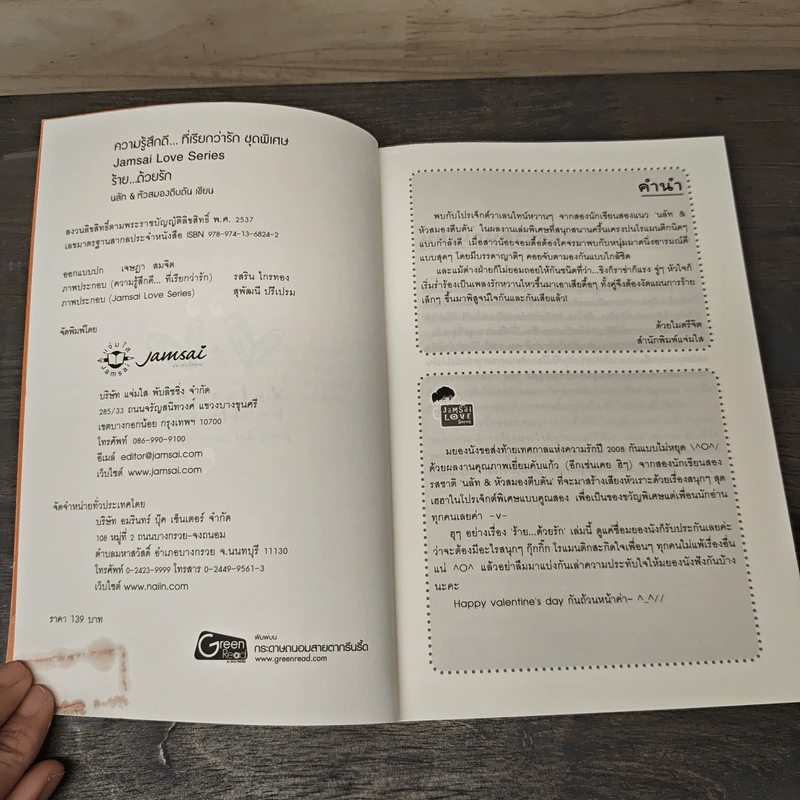 ความรู้สึกดี... ที่เรียกว่ารัก ชุดพิเศษ
Jamsai Love Series
ร้าย...ด้วยรัก
นลัท & หัวสมองตีบตัน เขียน
สงวนลิขสิทธิ์ตามพระราชบัญญัติลิขสิทธิ์ พ.ศ. 2537
เลขมาตรฐานสากลประจำหนังสือ ISBN 978-974-13-6824-2
ออกแบบปก เจษฎา สมจิต
ภาพประกอบ (ความรู้สึกดี... ที่เรียกว่ารัก) รสริน ไกรทอง
ภาพประกอบ (Jamsai Love Series) สุพัฒนี ปรีเปรม
จัดพิมพ์โดย
แจ่มใส
Jamsai
Jamsai
บริษัท แจ่มใส พับลิชชิ่ง จำกัด
285/33 ถนนจรัญสนิทวงศ์ แขวงบางขุนศรี
เขตบางกอกน้อย กรุงเทพฯ 10700
โทรศัพท์ 086-990-9100
อีเมล์ editor@jamsai.com
เว็บไซต์ www.jamsai.com
จัดจำหน่ายทั่วประเทศโดย
บริษัท อมรินทร์ บุ๊ค เซ็นเตอร์ จำกัด
108 หมู่ที่ 2 ถนนบางกรวย-จงถนอม
ตำบลมหาสวัสดิ์ อำเภอบางกรวย จ.นนทบุรี 11130
โทรศัพท์ 0-2423-9999 โทรสาร 0-2449-9561-3
เว็บไซต์ www.naiin.com
ราคา 139 บาท
Green Read
พิมพ์บน
กระดาษถนอมสายตากรีนรี้ด
www.greenread.com
คำนำ
พบกับโปรเจ็กต์วาเลนไทน์หวานๆ จากสองนักเขียนสองแนว 'นลัท &
หัวสมองตีบตัน' ในผลงานเล่มพิเศษที่สนุกสนานครื้นเครงปนโรแมนติกนิดๆ
แบบกำลังดี เมื่อสาวน้อยจอมดื้อต้องโคจรมาพบกับหนุ่มมาดนิ่งอารมณ์ดี
แบบสุดๆ โดยมีบรรดาญาติๆ คอยจับตามองกันแบบใกล้ชิด
และแม้ต่างฝ่ายก็ไม่ยอมถอยให้กันชนิดที่ว่า...ขิงก็ราข่าก็แรง จู่ๆ หัวใจก็
เริ่มร่ำร้องเป็นเพลงรักหวานไหวขึ้นมาเอาเสียดื้อๆ ทั้งคู่จึงต้องงัดแผนการร้าย
เล็กๆ ขึ้นมาพิสูจน์ใจกันและกันเสียแล้ว!
ด้วยไมตรีจิต
สำนักพิมพ์แจ่มใส
JAMSAI
LOVE
SERIES
มยองนังขอส่งท้ายเทศกาลแห่งความรักปี 2008 กันแบบไม่หยุด \^O^/
ด้วยผลงานคุณภาพเยี่ยมคับแก้ว (อีกเช่นเคย ฮิๆ) จากสองนักเขียนสอง
รสชาติ 'นลัท & หัวสมองตีบตัน' ที่จะมาสร้างเสียงหัวเราะด้วยเรื่องสนุกๆ สุด
เฮฮาในโปรเจ็กต์พิเศษแบบคูณสอง เพื่อเป็นของขวัญพิเศษแด่เพื่อนนักอ่าน
ทุกคนเลยค่า -v-
ฮุๆ อย่างเรื่อง 'ร้าย...ด้วยรัก' เล่มนี้ ดูแค่ชื่อมยองนังก็รับประกันเลยค่ะ
ว่าจะต้องมีอะไรสนุกๆ กุ๊กกิ๊ก โรแมนติกสะกิดใจเพื่อนๆ ทุกคนไม่แพ้เรื่องอื่น
แน่ ^O^ แล้วอย่าลืมมาแบ่งกันเล่าความประทับใจให้มยองนังฟังกันบ้าง
นะคะ
Happy valentine's day กันถ้วนหน้าค่า~ ^_^//